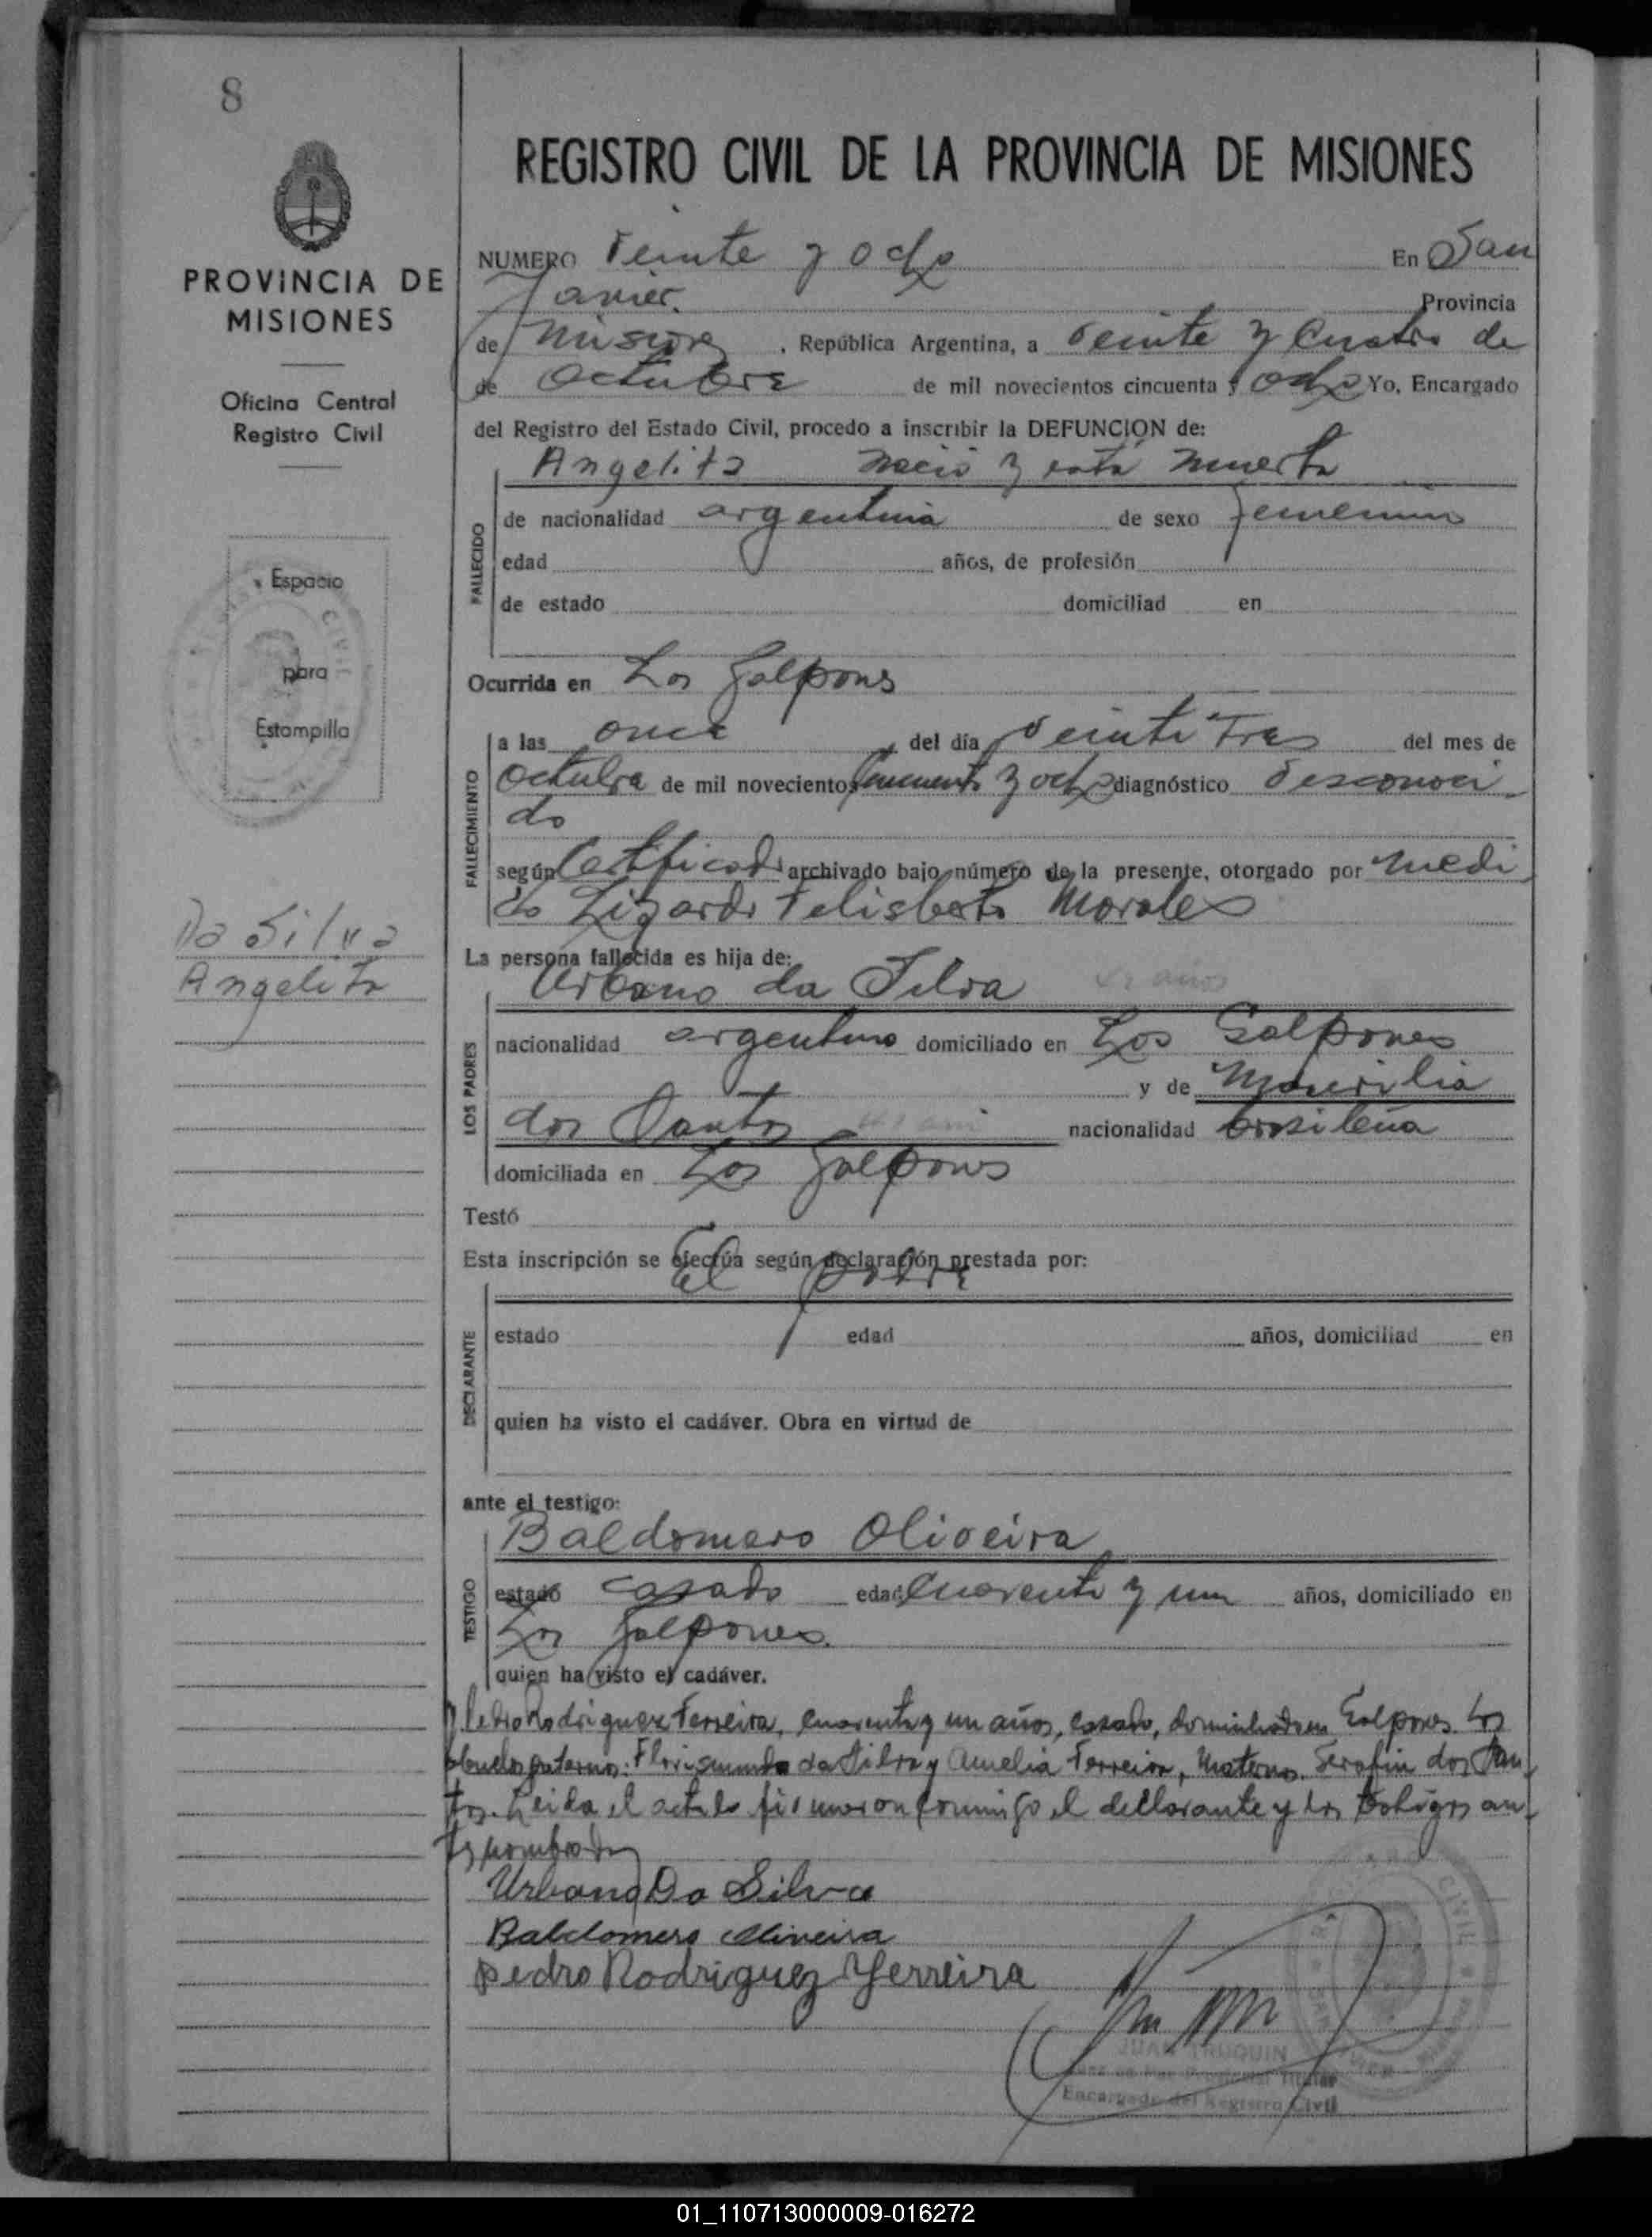 8
PROVINCIA DE
MISIONES
Oficina Central
Registro Civil
Espacio
para
Estampilla
Da Silva
Angelita
REGISTRO CIVIL DE LA PROVINCIA DE MISIONES
NUMERO Veinte y ocho En San
Javier Provincia
de Misiones, República Argentina, a veinte y cuatro de
de Octubre de mil novecientos cincuenta y ocho Yo, Encargado
del Registro del Estado Civil, procedo a inscribir la DEFUNCION de:
Angelita nació y está muerta
FALLECIDO
de nacionalidad argentina de sexo femenino
edad años, de profesión
de estado domiciliad en
Ocurrida en Los Galpones
FALLECIMIENTO
a las once del día veinti tres del mes de
octubre de mil novecientos cincuenta y ocho diagnóstico desconoci-
do
según Certificado archivado bajo número de la presente, otorgado por medi
co Lizardo Felisberto Morales
La persona fallecida es hija de:
Urbano da Silva
LOS PADRES
nacionalidad argentino domiciliado en Los Galpones
y de Maurilia
dos Santos nacionalidad brasileña
domiciliada en Los Galpones
Testó
Esta inscripción se efectúa según declaración prestada por:
El padre
DECLARANTE
estado edad años, domiciliad en
quien ha visto el cadáver. Obra en virtud de
ante el testigo:
Baldomero Oliveira
TESTIGO
estado casado edad cuarenta y un años, domiciliado en
Los Galpones
quien ha visto el cadáver.
Pedro Rodriguez Ferreira, cuarenta y un años, casado, domiciliado en Galpones. Los
abuelos paternos: da Silva y Amelia Ferreira, Maternos. Serafin dos San-
tos. Leida el acta la firmaron conmigo el declarante y los testigos an-
tes nombrados
Urbano Da Silva
Baldomero Oliveira
Pedro Rodriguez Ferreira
JUAN TRUQUIN
Titular
Encargado del Registro Civil
01_110713000009-016272